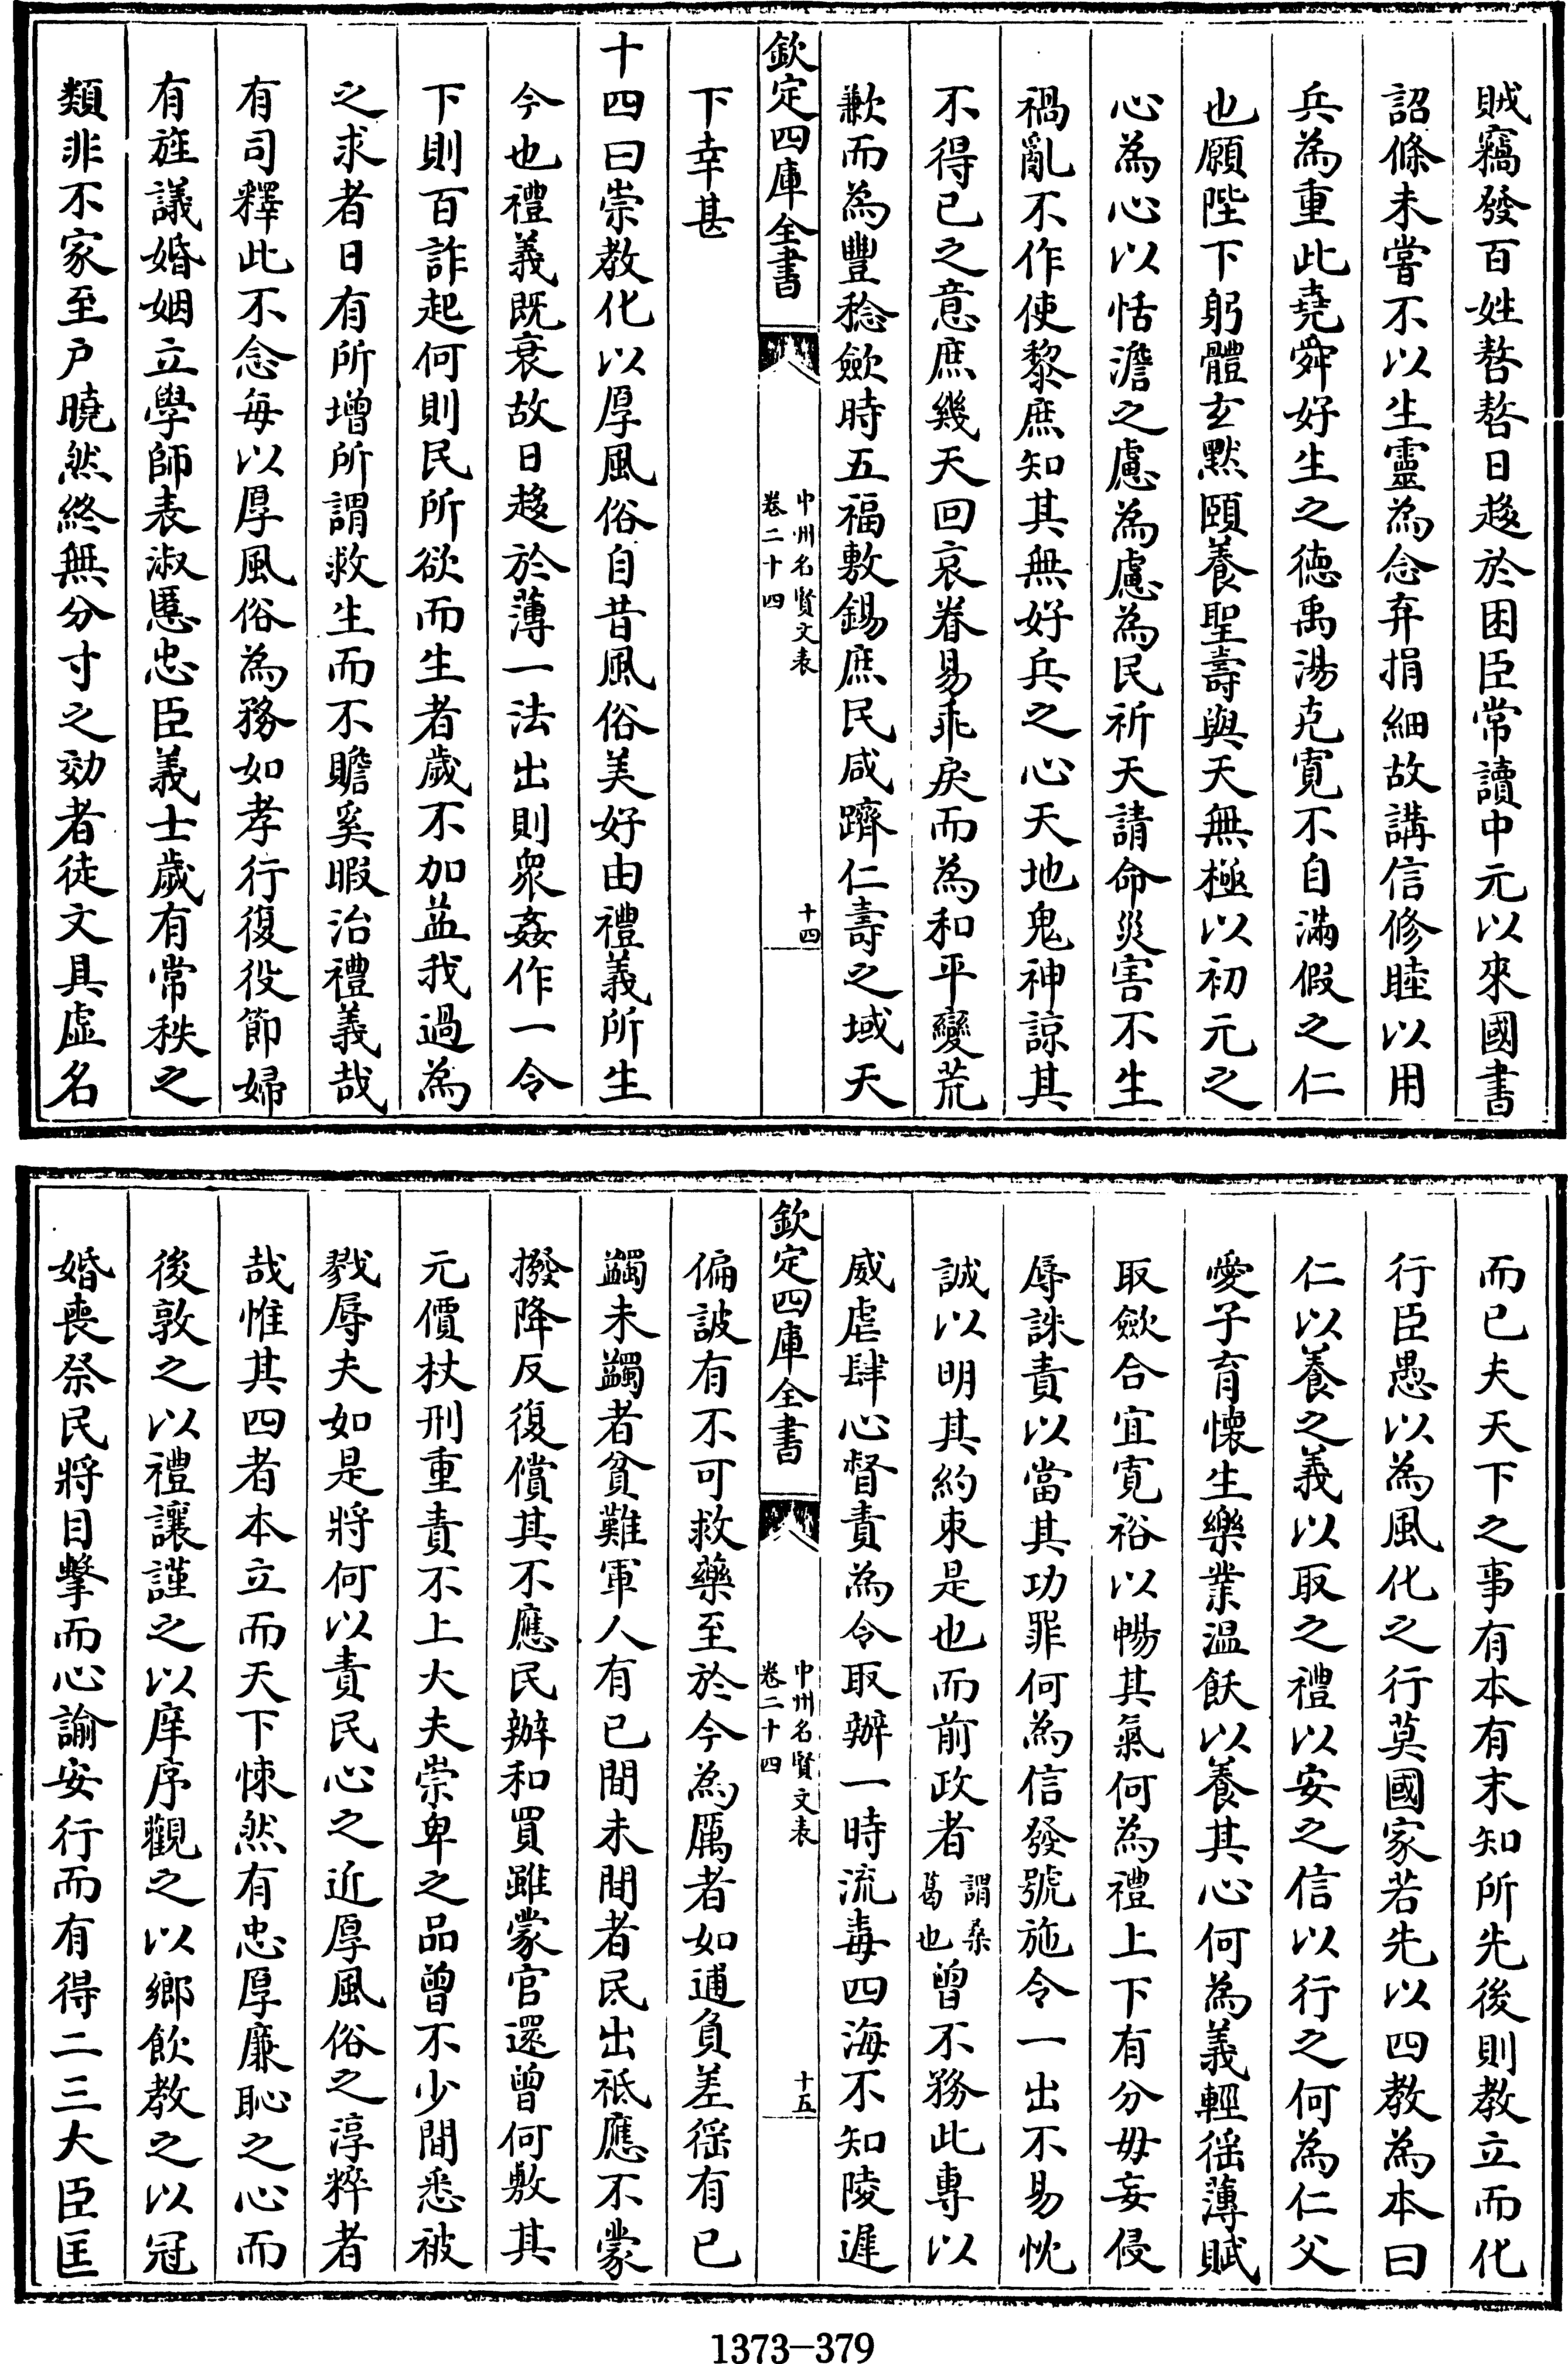 賊竊發百姓嗸嗸日趍於困臣常讀中元以來國書
詔條未嘗不以生靈為念弃捐細故講信修睦以用
兵為重此堯舜好生之德禹湯克寛不自滿假之仁
也願陛下躬體玄默頤養聖壽與天無極以初元之
心為心以恬澹之慮為慮為民祈天請命災害不生
禍亂不作使黎庶知其無好兵之心天地鬼神諒其
不得已之意庶幾天回哀眷易乖戾而為和平變荒
歉而為豐稔斂時五福敷錫庶民咸躋仁壽之域天
欽定四庫全書
中州名賢文表
卷二十四
十四
下幸甚
十四曰崇教化以厚風俗自昔風俗美好由禮義所生
今也禮義既衰故日趍於薄一法出則衆姦作一令
下則百詐起何則民所欲而生者歲不加益我過為
之求者日有所增所謂救生而不贍奚暇治禮義哉
有司釋此不念每以厚風俗為務如孝行復役節婦
有旌議婚姻立學師表淑慝忠臣義士歲有常秩之
類非不家至户曉然終無分寸之効者徒文具虛名
而已夫天下之事有本有末知所先後則教立而化
行臣愚以為風化之行莫國家若先以四教為本曰
仁以養之義以取之禮以安之信以行之何為仁父
愛子育懷生樂業温飫以養其心何為義輕徭薄賦
取斂合宜寛裕以暢其氣何為禮上下有分毋妄侵
辱誅責以當其功罪何為信發號施令一出不易忱
誠以明其約束是也而前政者
謂桑
葛也
曾不務此專以
威虐肆心督責為令取辦一時流毒四海不知陵遲
欽定四庫全書
中州名賢文表
卷二十四
十五
偏詖有不可救藥至於今為厲者如逋負差徭有已
蠲未蠲者貧難軍人有已間未間者民出祗應不蒙
撥降反復償其不應民辦和買雖蒙官還曾何敷其
元價杖刑重責不上大夫崇卑之品曾不少間悉被
戮辱夫如是將何以責民心之近厚風俗之淳粹者
哉惟其四者本立而天下悚然有忠厚廉恥之心而
後敦之以禮讓謹之以庠序觀之以鄉飲教之以冠
婚喪祭民將目擊而心諭安行而有得二三大臣匡
1373-379